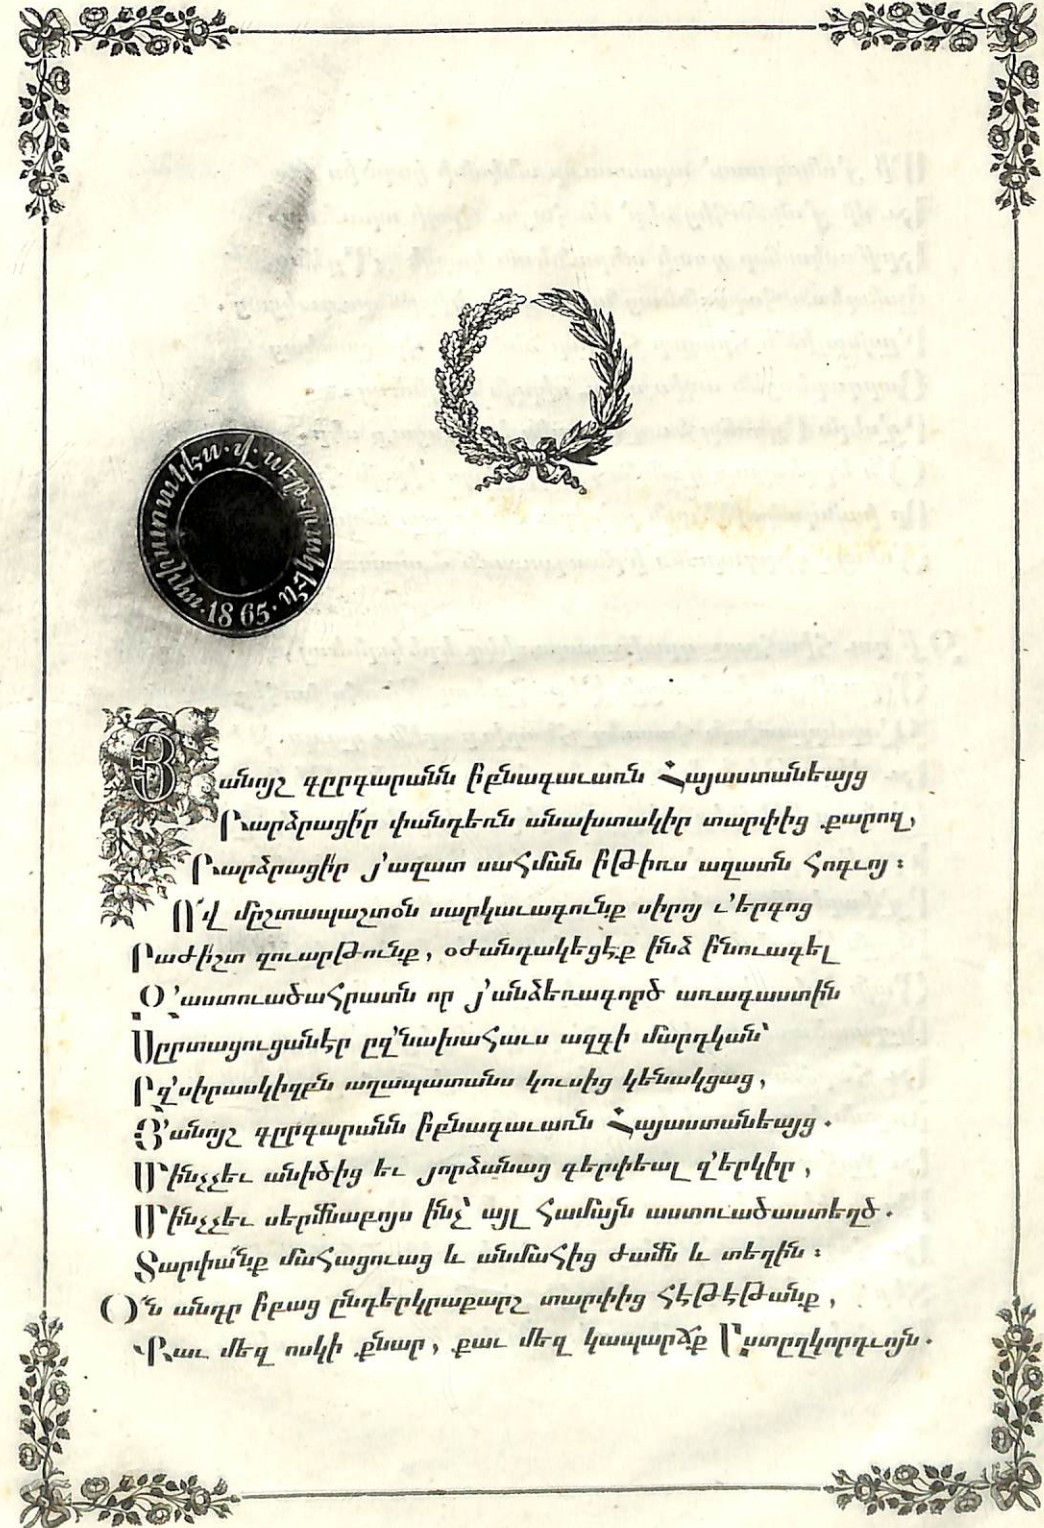 1865
Յանոյշ գըրգարանն ՛ի բնագաւառն Հայաստանեայց
Բարձրացի՛ր փանդեռն անախտակիր տարփից քարոզ,
Բարձրացի՛ր յ՚ազատ սահման ՛ի թիռս ազատն հոգւոյ։
Ո՜վ մըշտապաշտօն սարկաւագունք սիրոյ ւ՚երգոց
Բաժիշտ զուարթունք, օժանդակեցէք ինձ ՛ի նուագել
Զ՚աստուածահրատն որ յ՚անձեռագործ առագաստին
Սըրտացուցանէր ըզ՚նախահաւս ազգի մարդկան՝
Ըզ՚սիրասկիզբն աղապատանս կուսից կենակցաց,
Յ՚անոյշ գըրգարանն ՛ի բնագաւառն Հայաստանեայց.
Մինչչեւ անիծից եւ յորձանաց գերփեալ զ՚երկիր,
Մինչչեւ սերմնաբոյս ինչ՝ այլ համայն աստուածաստեղծ.
Տարփա՜նք մահացուաց և անմահից ժամն և տեղին։
Օ՜ն անդր ՛ի բաց ընդերկրաքարշ տարփից հէթէթանք,
Քաւ մեզ ոսկի քնար, քաւ մեզ կապարճք Ըստըղկորդւոյն.